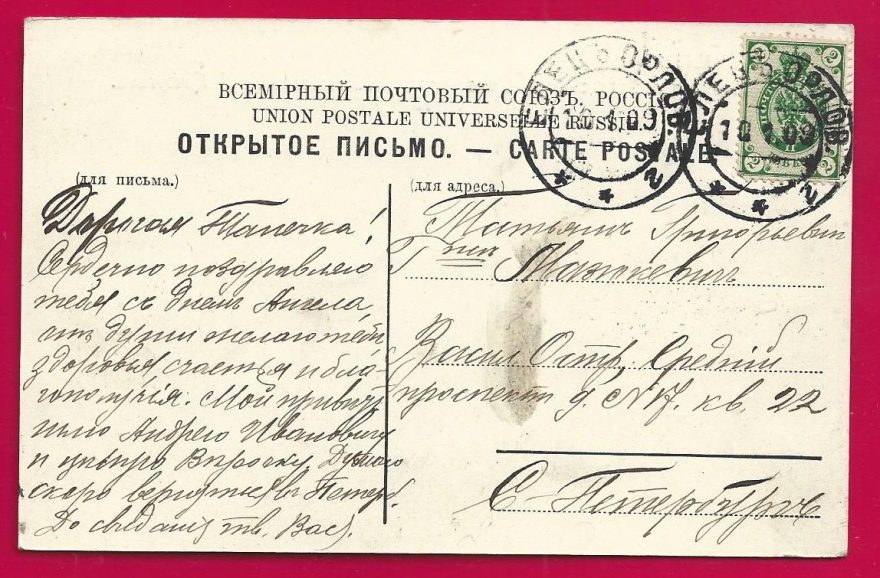 ВСЕМІРНЫЙ ПОЧТОВЫЙ СОЮЗЪ. РОССІЯ
UNION POSTALE UNIVERSELLE RUSSIE.
ОТКРЫТОЕ ПИСЬМО. — CARTE POSTALE
ЕЛЕЦЪ ОРЛОВ. 10 1 09
ЕЛЕЦЪ ОРЛОВ. 10 1 09
2 2
(для письма.)
Дорогая Танечка!
Сердечно поздравляю
тебя съ днемъ Ангела,
отъ души желаю тебѣ
здоровья счастья и бла-
гополучія. Мой привѣтъ
Андрею Ивановичу
и цѣлую Думаю
скоро вернуться въ Петерб.
До
(для адреса.)
Татьянѣ Григорьевнѣ
Г-жѣ Мацкевичъ
Васил. Остр. Средній
проспектъ д. № 17. кв. 22
С-Петербургъ